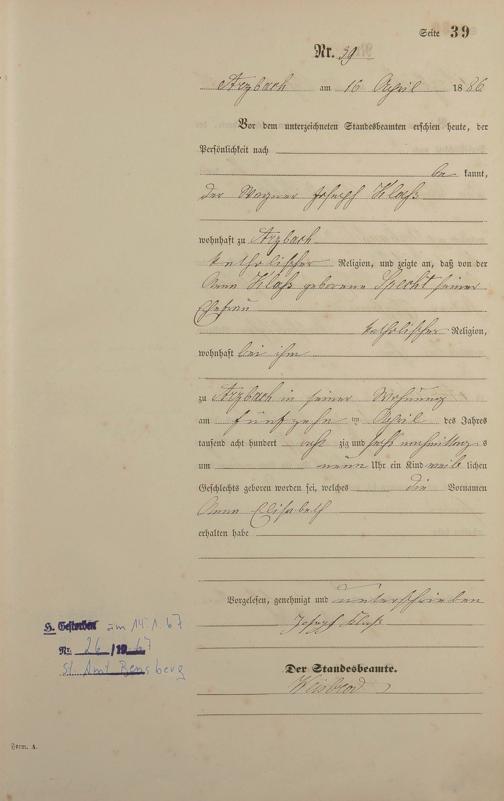 Seite 39
Nr. 39
Arzbach am 16 April 1886
Vor dem unterzeichneten Standesbeamten erschien heute, der
Persönlichkeit nach
be kannt,
der Wagner Joseph Klaß
wohnhaft zu Arzbach
katholischer Religion, und zeigte an, daß von der
Anna Klaß geborene Specht seiner
Ehefrau
katholischer Religion,
wohnhaft bei ihm
zu Arzbach in seiner Wohnung
am fünfzehn ten April des Jahres
tausend acht hundert acht zig und sechs nachmittags
um neun Uhr ein Kind weib lichen
Geschlechts geboren worden sei, welches die Vornamen
Anna Elisabeth
erhalten habe
Vorgelesen, genehmigt und unterschrieben
Joseph Klaß
Der Standesbeamte.
Weisbrod
H. Gestorben am 14.1.67
Nr. 26/1967
St. Amt Bensberg
Form. A.